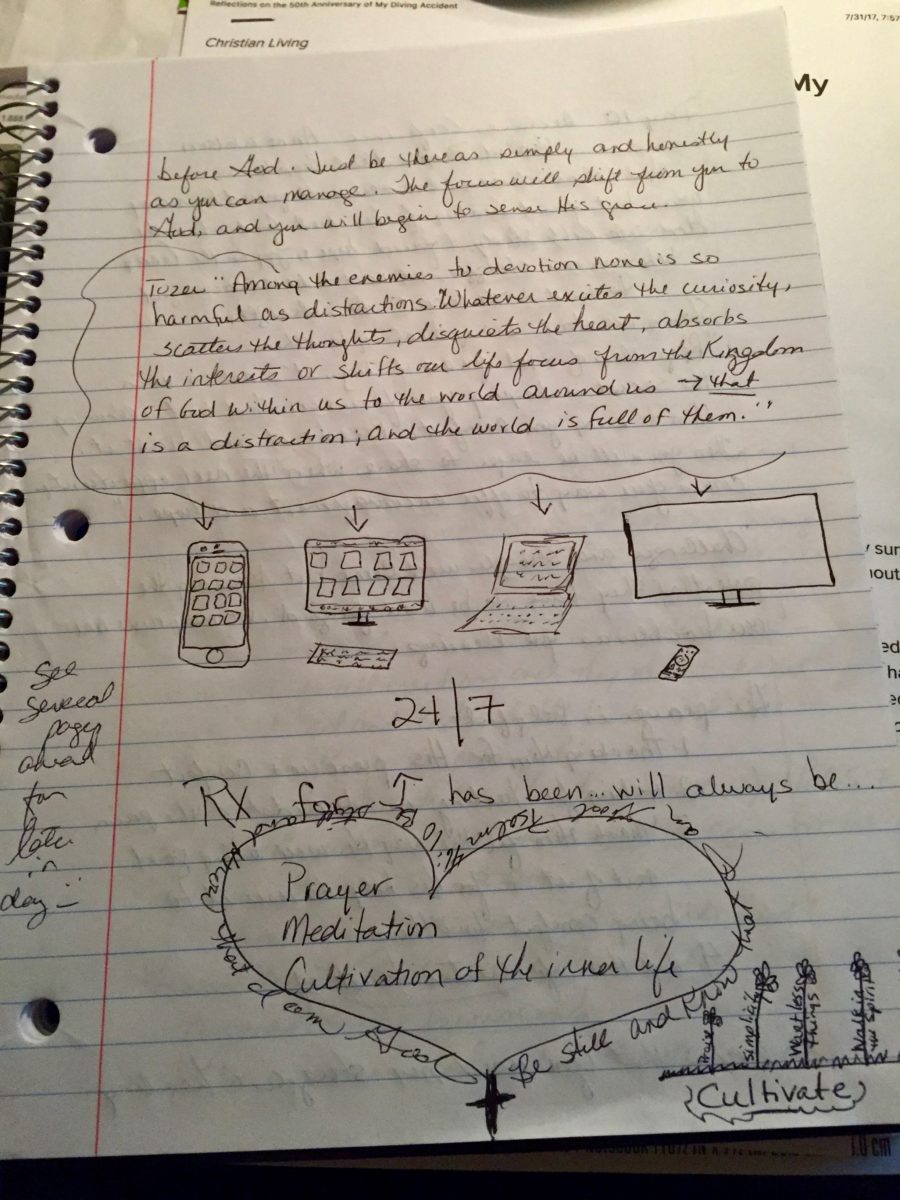 Reflections on the 50th Anniversary of My Diving Accident
7/31/17, 7:57
Christian Living
My
before God. Just be there as simply and honestly
as you can manage. The focus will shift from you to
God, and you will begin to sense His grace.
Tozer "Among the enemies to devotion none is so
harmful as distractions. Whatever excites the curiosity,
scatters the thoughts, disquiets the heart, absorbs
the interests or shifts our life focus from the Kingdom
of God within us to the world around us → that
is a distraction; and the world is full of them."
24/7
See
several
pages
ahead
for
later
in
day
Rx for ↑ has been... will always be...
Be still and Know that I am God
Psalm 46:10
Be still and Know that I am God
Prayer
Meditation
Cultivation of the inner life
simplicity
Want less
things
Walk in
the Spirit
Cultivate
1.0 cm